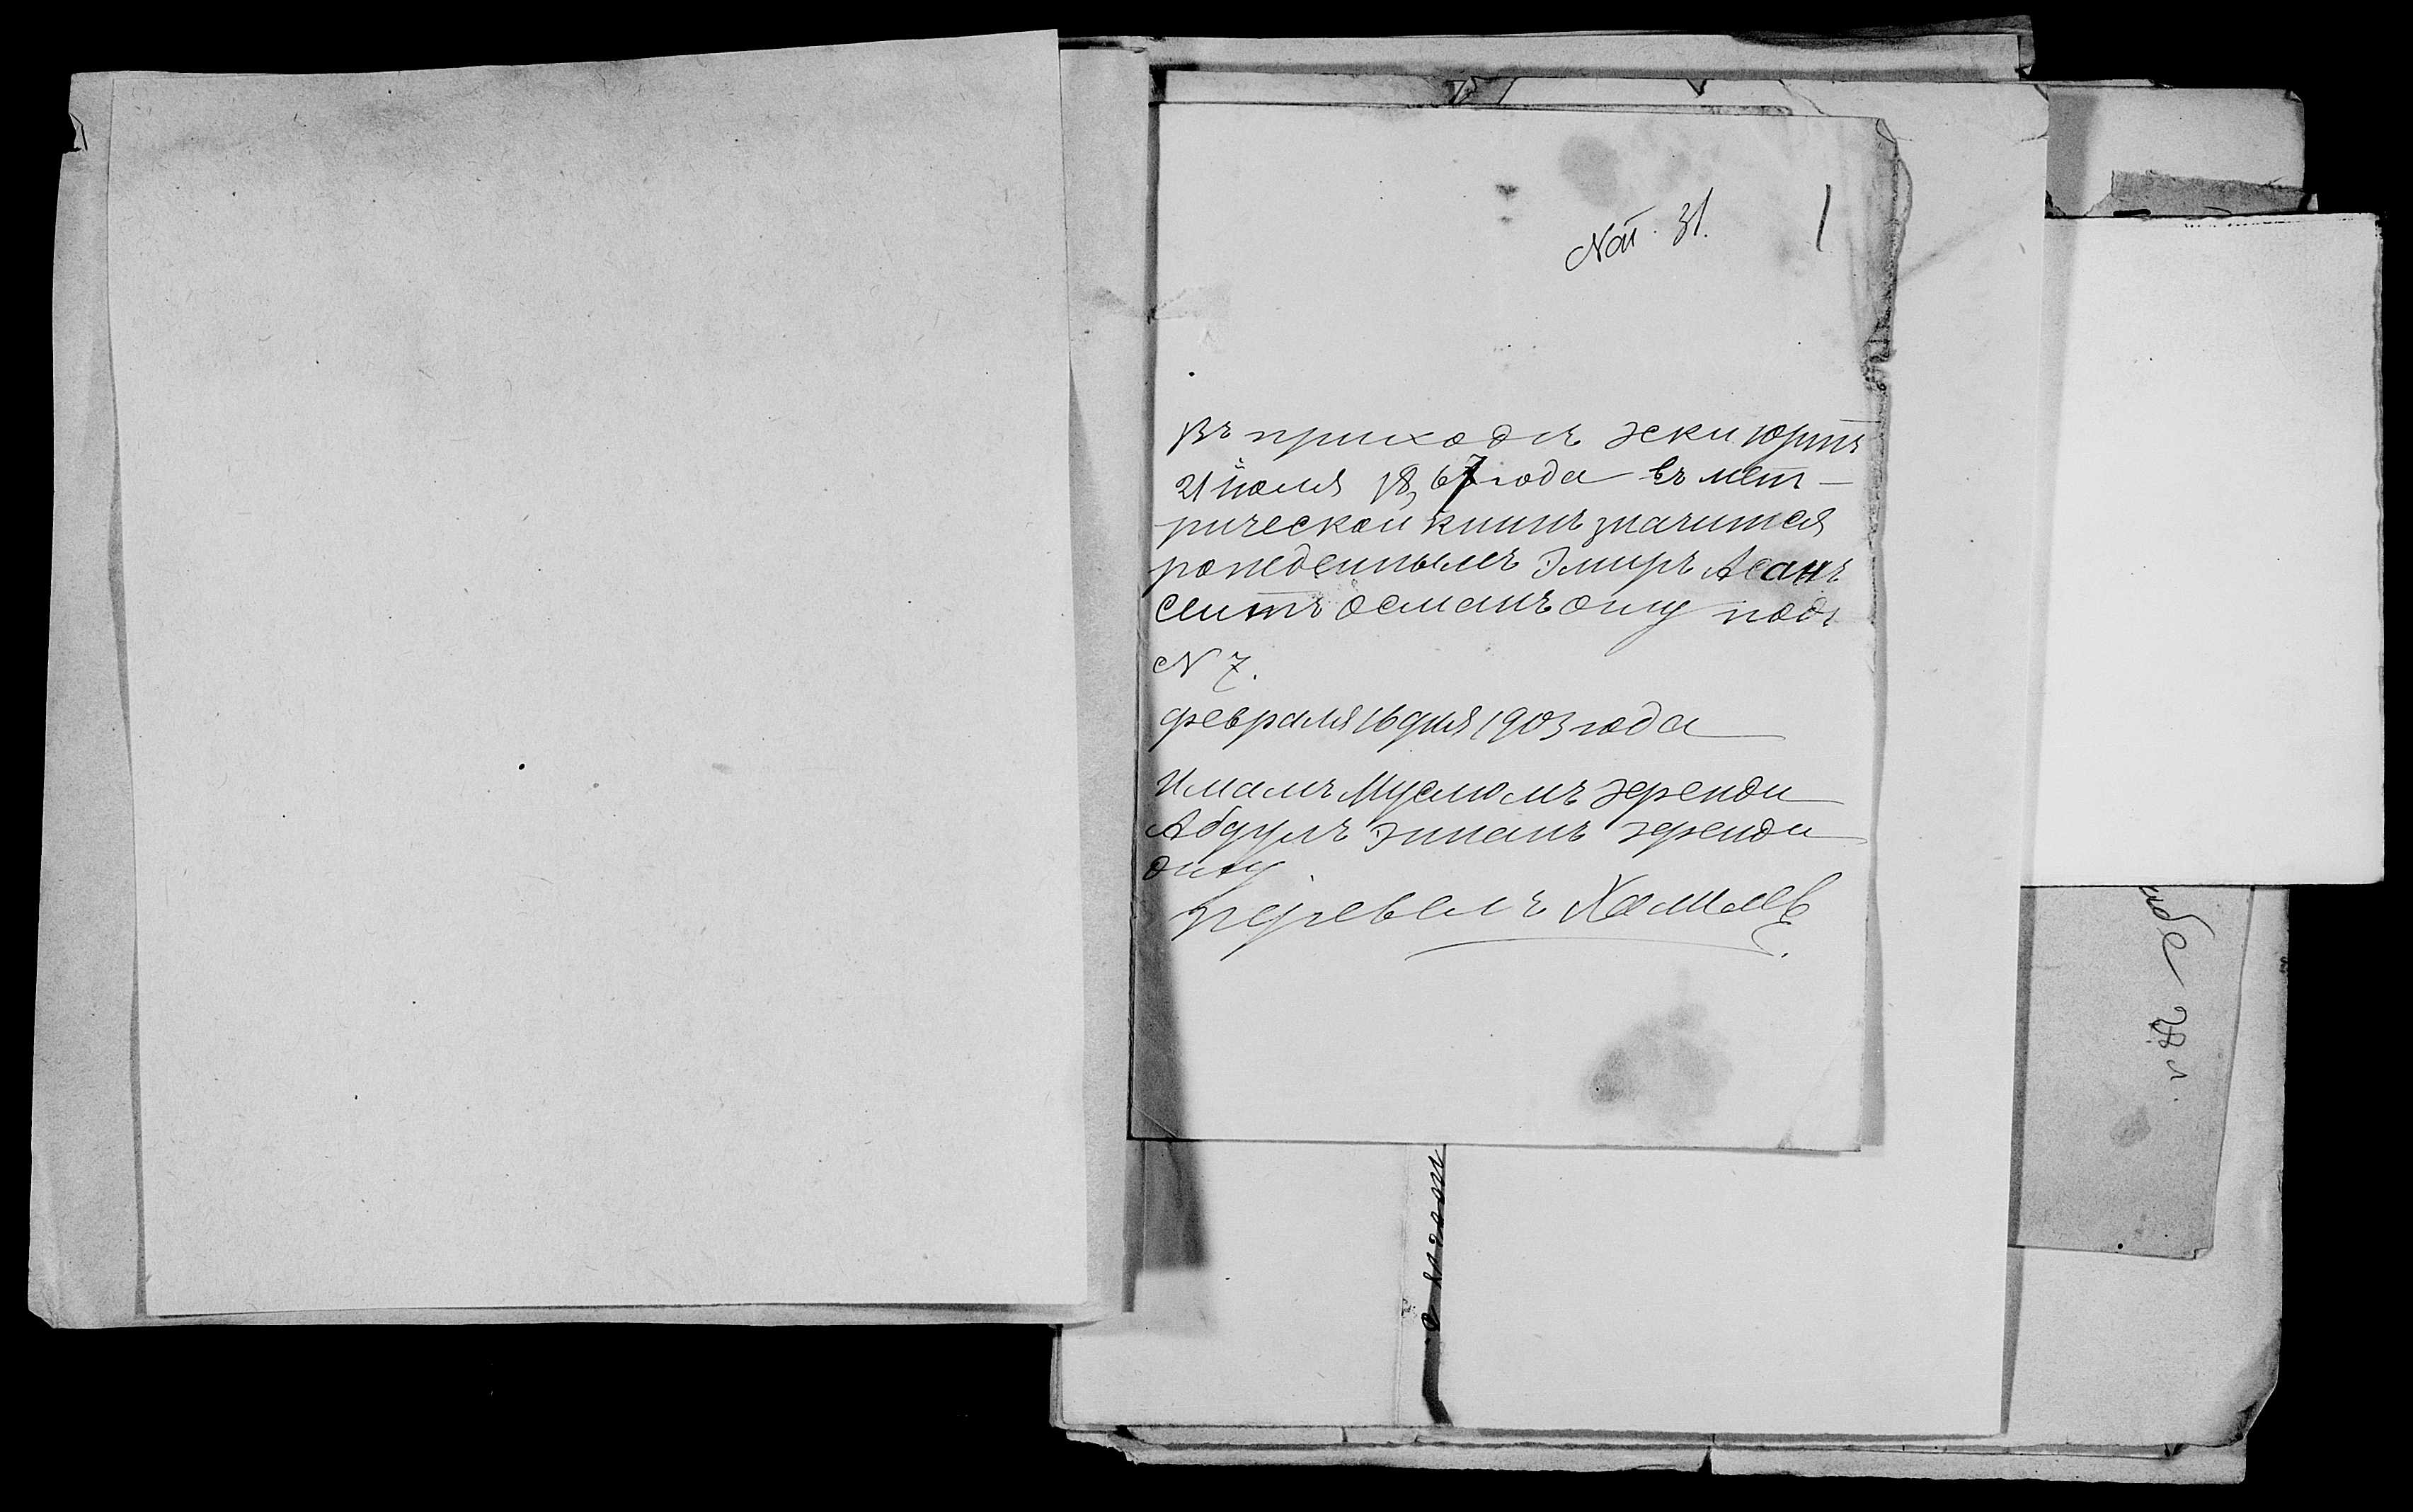 Nот. 31. 1
Въ приходѣ Эски Юртъ
21 июля 1867 года въ мет-
рической книгѣ значится
рожденнымъ Эмиръ Асанъ
Сеитъ Османъ оглу подъ
N 7.
февраля 16 дня 1903 года
Имамъ Муслюмъ эфенди
Абдулъ эфенди
оглу
перевелъ